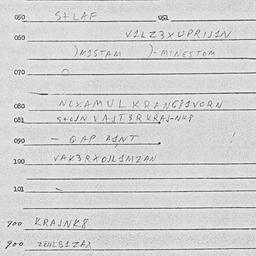 050 S+LAF 051
060 V1LZ3XUPRIJ1N
)MISTAM )-MINESTOM
070
080 NOXAMULKRANG81VORN
081 S+OJN VAJT3RKRAJ-NK8
090 - QAP AJNT
100 VAK3RXOJL1MZAN
101 -
900 KRAJNK8
900